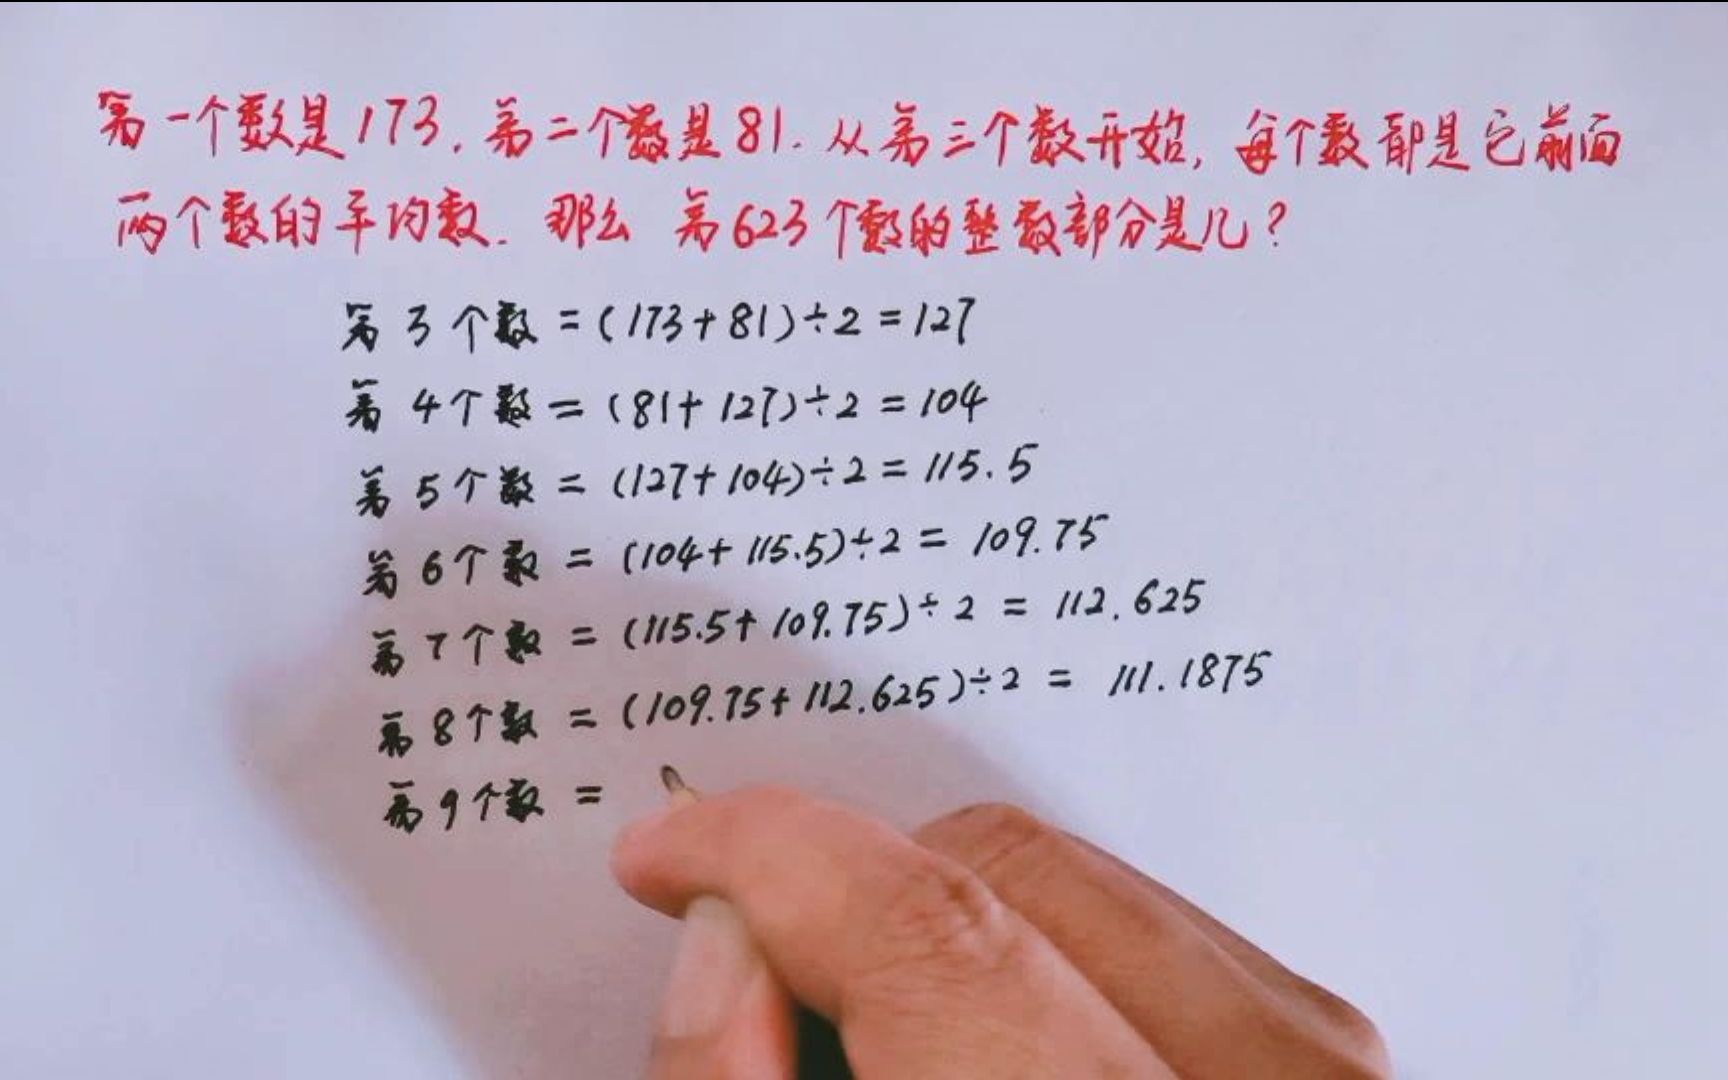 第一个数是173.第二个数是81.从第三个数开始,每个数都是它前面
两个数的平均数.那么 第623个数的整数部分是几?
第3个数=(173+81)÷2=127
第4个数=(81+127)÷2=104
第5个数=(127+104)÷2=115.5
第6个数=(104+115.5)÷2=109.75
第7个数=(115.5+109.75)÷2=112.625
第8个数=(109.75+112.625)÷2=111.1875
第9个数=